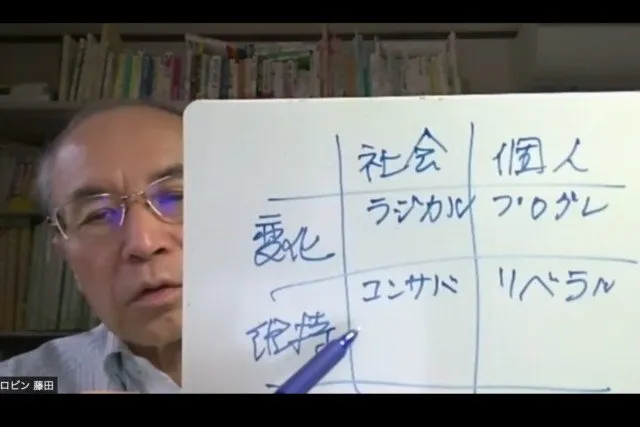 社会 個人
変化 ラジカル プログレ
維持 コンサバ リベラル
ロビン 藤田